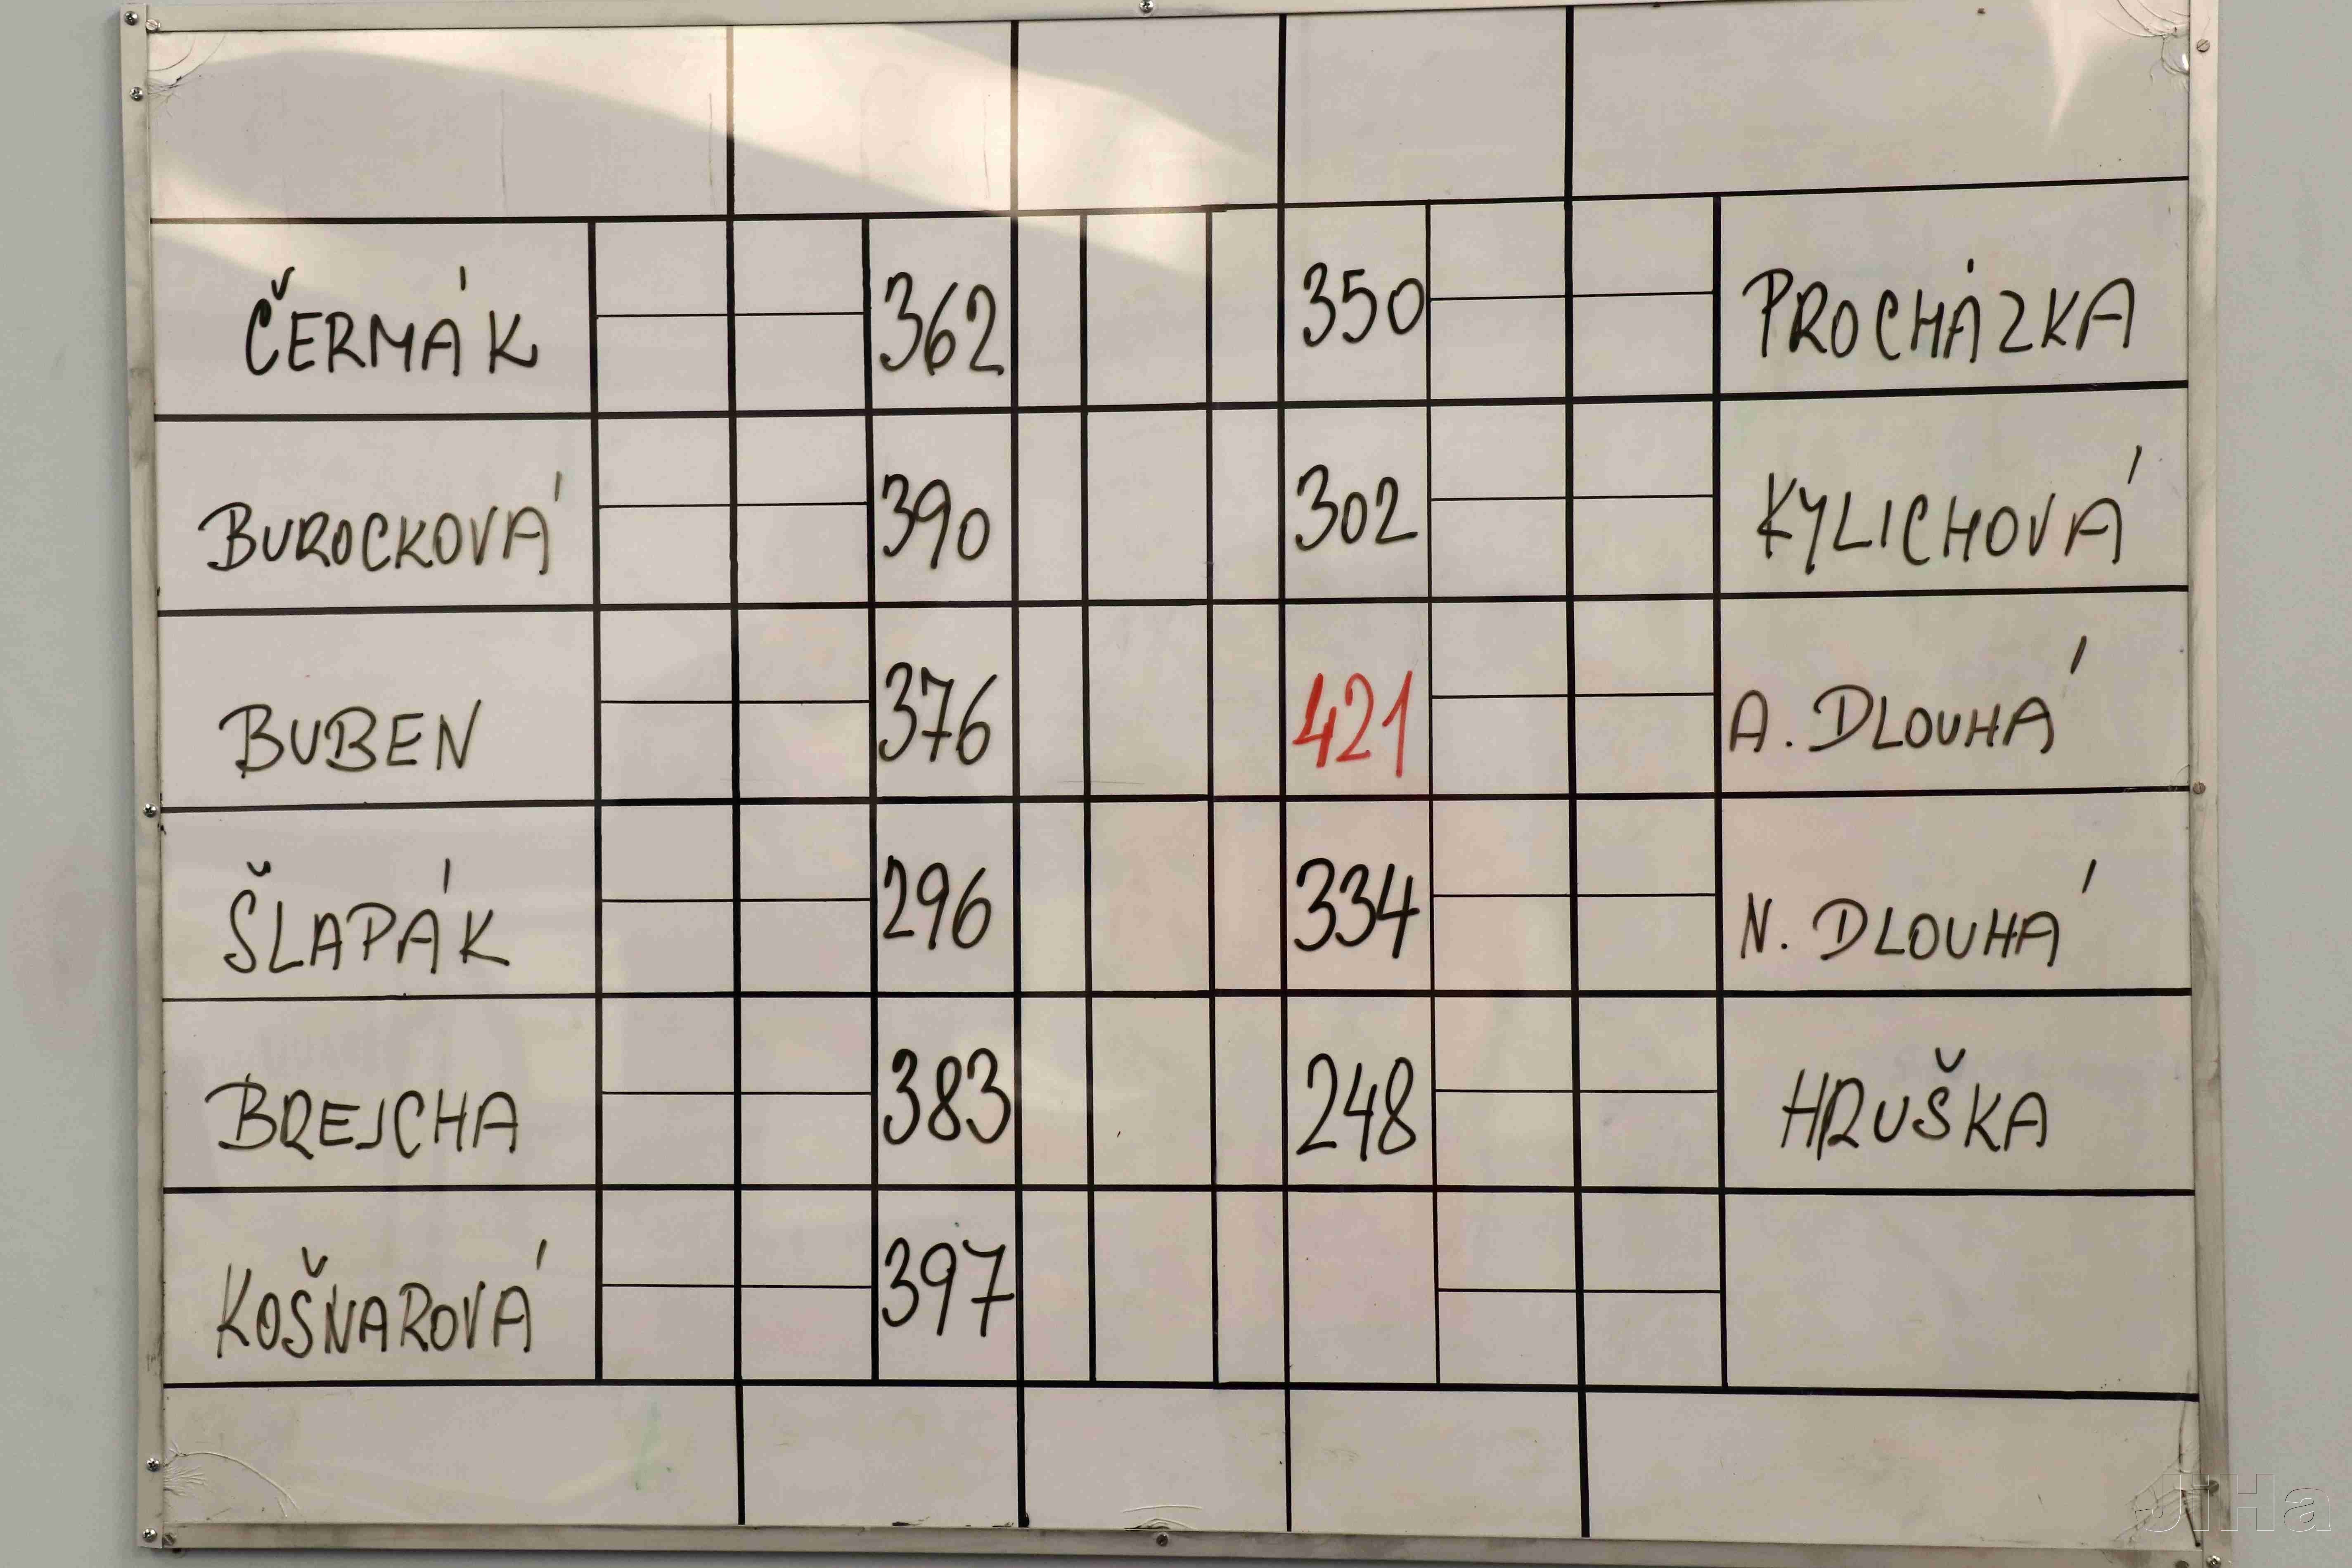 ČERMÁK 362 350 PROCHÁZKA
BUROCKOVÁ 390 302 KYLICHOVÁ
BUBEN 376 421 A. DLOUHÁ
ŠLAPÁK 296 334 N. DLOUHÁ
BREJCHA 383 248 HRUŠKA
KOŠNAROVÁ 397
JiHa